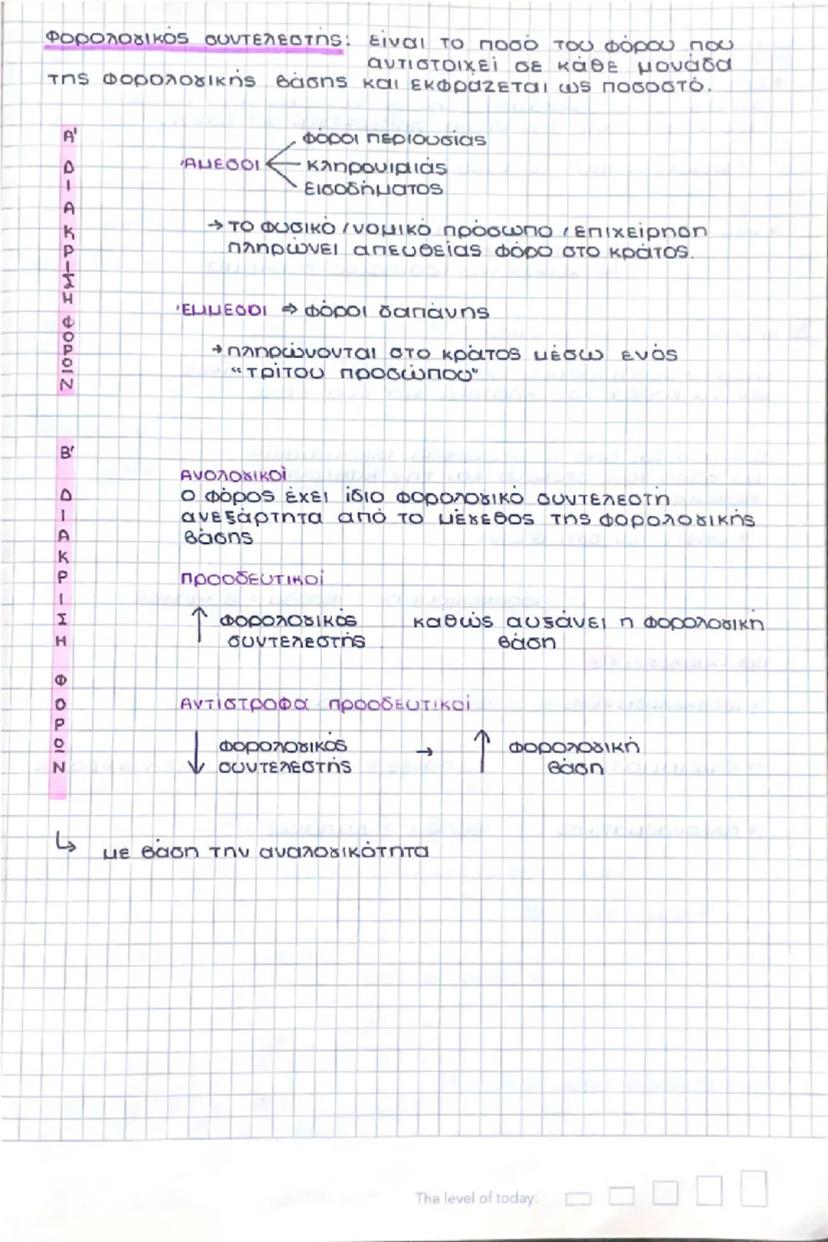 Φορολογικός συντελεστής: είναι το ποσό του φόρου που
αντιστοιχεί σε κάθε μονάδα
της φορολογικής βάσης και εκφράζεται ως ποσοστό.
Α' ΔΙΑΚΡΙΣΗ ΦΟΡΩΝ
Άμεσοι
φόροι περιουσίας
κληρονομιάς
εισοδήματος
→ το φυσικό / νομικό πρόσωπο / επιχείρηση
πληρώνει απευθείας φόρο στο κράτος.
Έμμεσοι ⇒ φόροι δαπάνης
→ πληρώνονται στο κράτος μέσω ενός
"τρίτου προσώπου"
Β' ΔΙΑΚΡΙΣΗ ΦΟΡΩΝ
Ανολογικοί
Ο φόρος έχει ίδιο φορολογικό συντελεστή
ανεξάρτητα από το μέγεθος της φορολογικής
βάσης
Προοδευτικοί
↑ φορολογικός καθώς αυξάνει η φορολογική
συντελεστής βάση
Αντίστροφα προοδευτικοί
↓ φορολογικός → ↑ φορολογική
συντελεστής βάση
↳ με βάση την αναλογικότητα
The level of today: